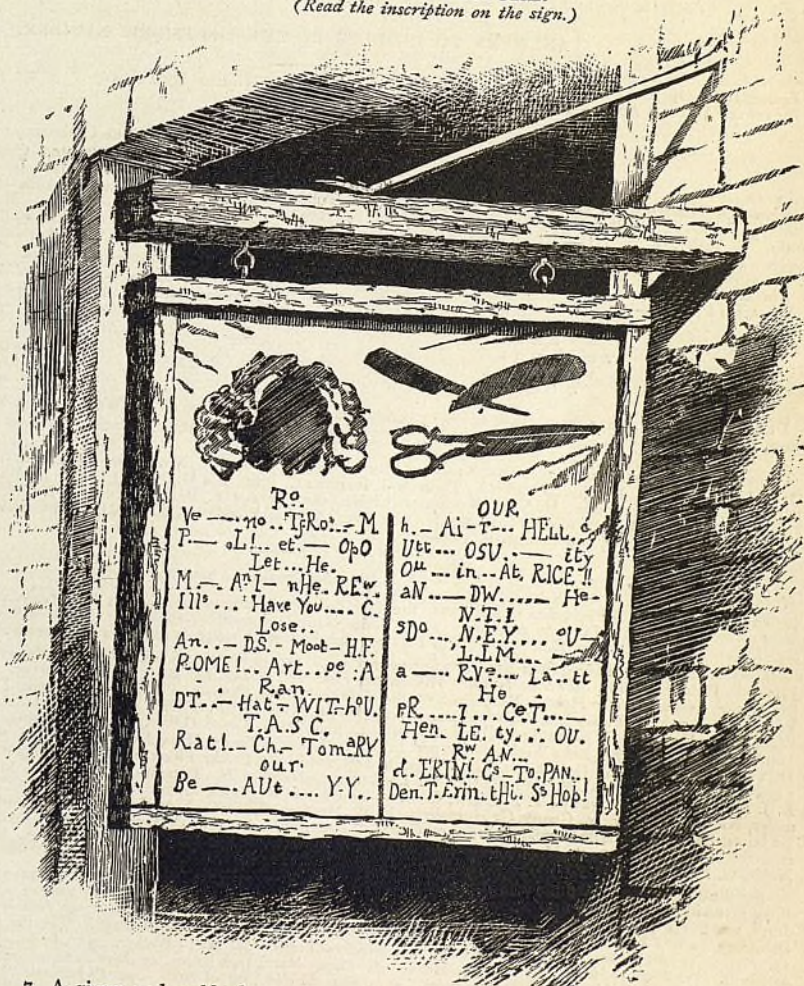 (Read the inscription on the sign.)
Ro..
Ve —.no..TjRo!.-M
P— .L!.. et.— OpO
Let...He.
M.—.AnI—nHe.REw.
Ills... Have You.... C.
Lose..
An..— D.S.- Moot-H.F.
ROME!.. Art..oe :A
Ran.
DT..—Hat-WIThoU.
T.A.S C.
Rat!.-Ch-TomaRY
our.
Be —.AUt .... Y.Y..
OUR
h.— Ai-r... HELL.o
Utt... OSU..— ity
Ou ...in..At, RICE!!
aN.— DW..... He-
N.T.I
sDo..., N.E.Y.... oU—
L.I.M... —
a —. RVe... La..tt
He
pR....I...CeT...—
Hen. LE. ty... OU.
Rw AN...
d. ERIN! Cs-To.PAN..
Den.T.Erin.tHi. SsHop!